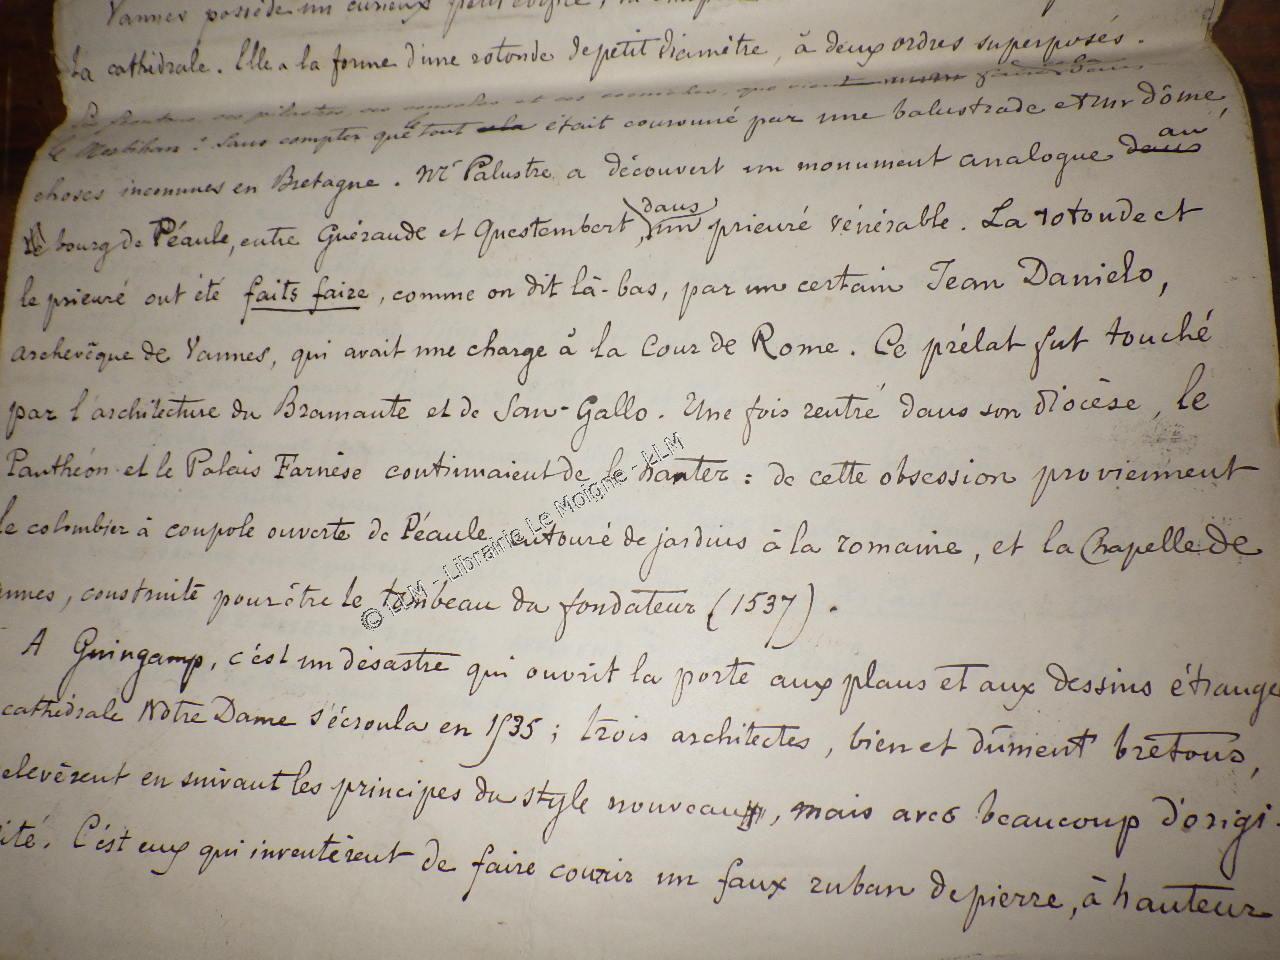 Vannes possède un curieux petit édifice,
la cathédrale. Elle a la forme d'une rotonde de petit diamètre, à deux ordres superposés.
et ces
le Morbihan ! Sans compter que le tout cela était couronné par une balustrade et un dôme,
choses inconnues en Bretagne. Mr Palustre a découvert un monument analogue dans au
bourg de Péaule, entre Guérande et Questembert, dans un prieuré vénérable. La rotonde et
le prieuré ont été faits faire, comme on dit là-bas, par un certain Jean Danielo,
archevêque de Vannes, qui avait une charge à la Cour de Rome. Ce prélat fut touché
par l'architecture du Bramante et de San-Gallo. Une fois rentré dans son diocèse, le
Panthéon et le Palais Farnèse continuaient de le hanter : de cette obsession proviennent
le colombier à coupole ouverte de Péaule, entouré de jardins à la romaine, et la Chapelle de
nnes, construite pour être le tombeau du fondateur (1537).
A Guingamp, c'est un désastre qui ouvrit la porte aux plans et aux dessins étrange
cathédrale Notre Dame s'écroula en 1535 ; trois architectes, bien et dûment bretons,
elevèrent en suivant les principes du style nouveau, mais avec beaucoup d'origi-
ité. C'est eux qui inventèrent de faire courir un faux ruban de pierre, à hauteur
© LLM - Librairie Le Moigne - LLM